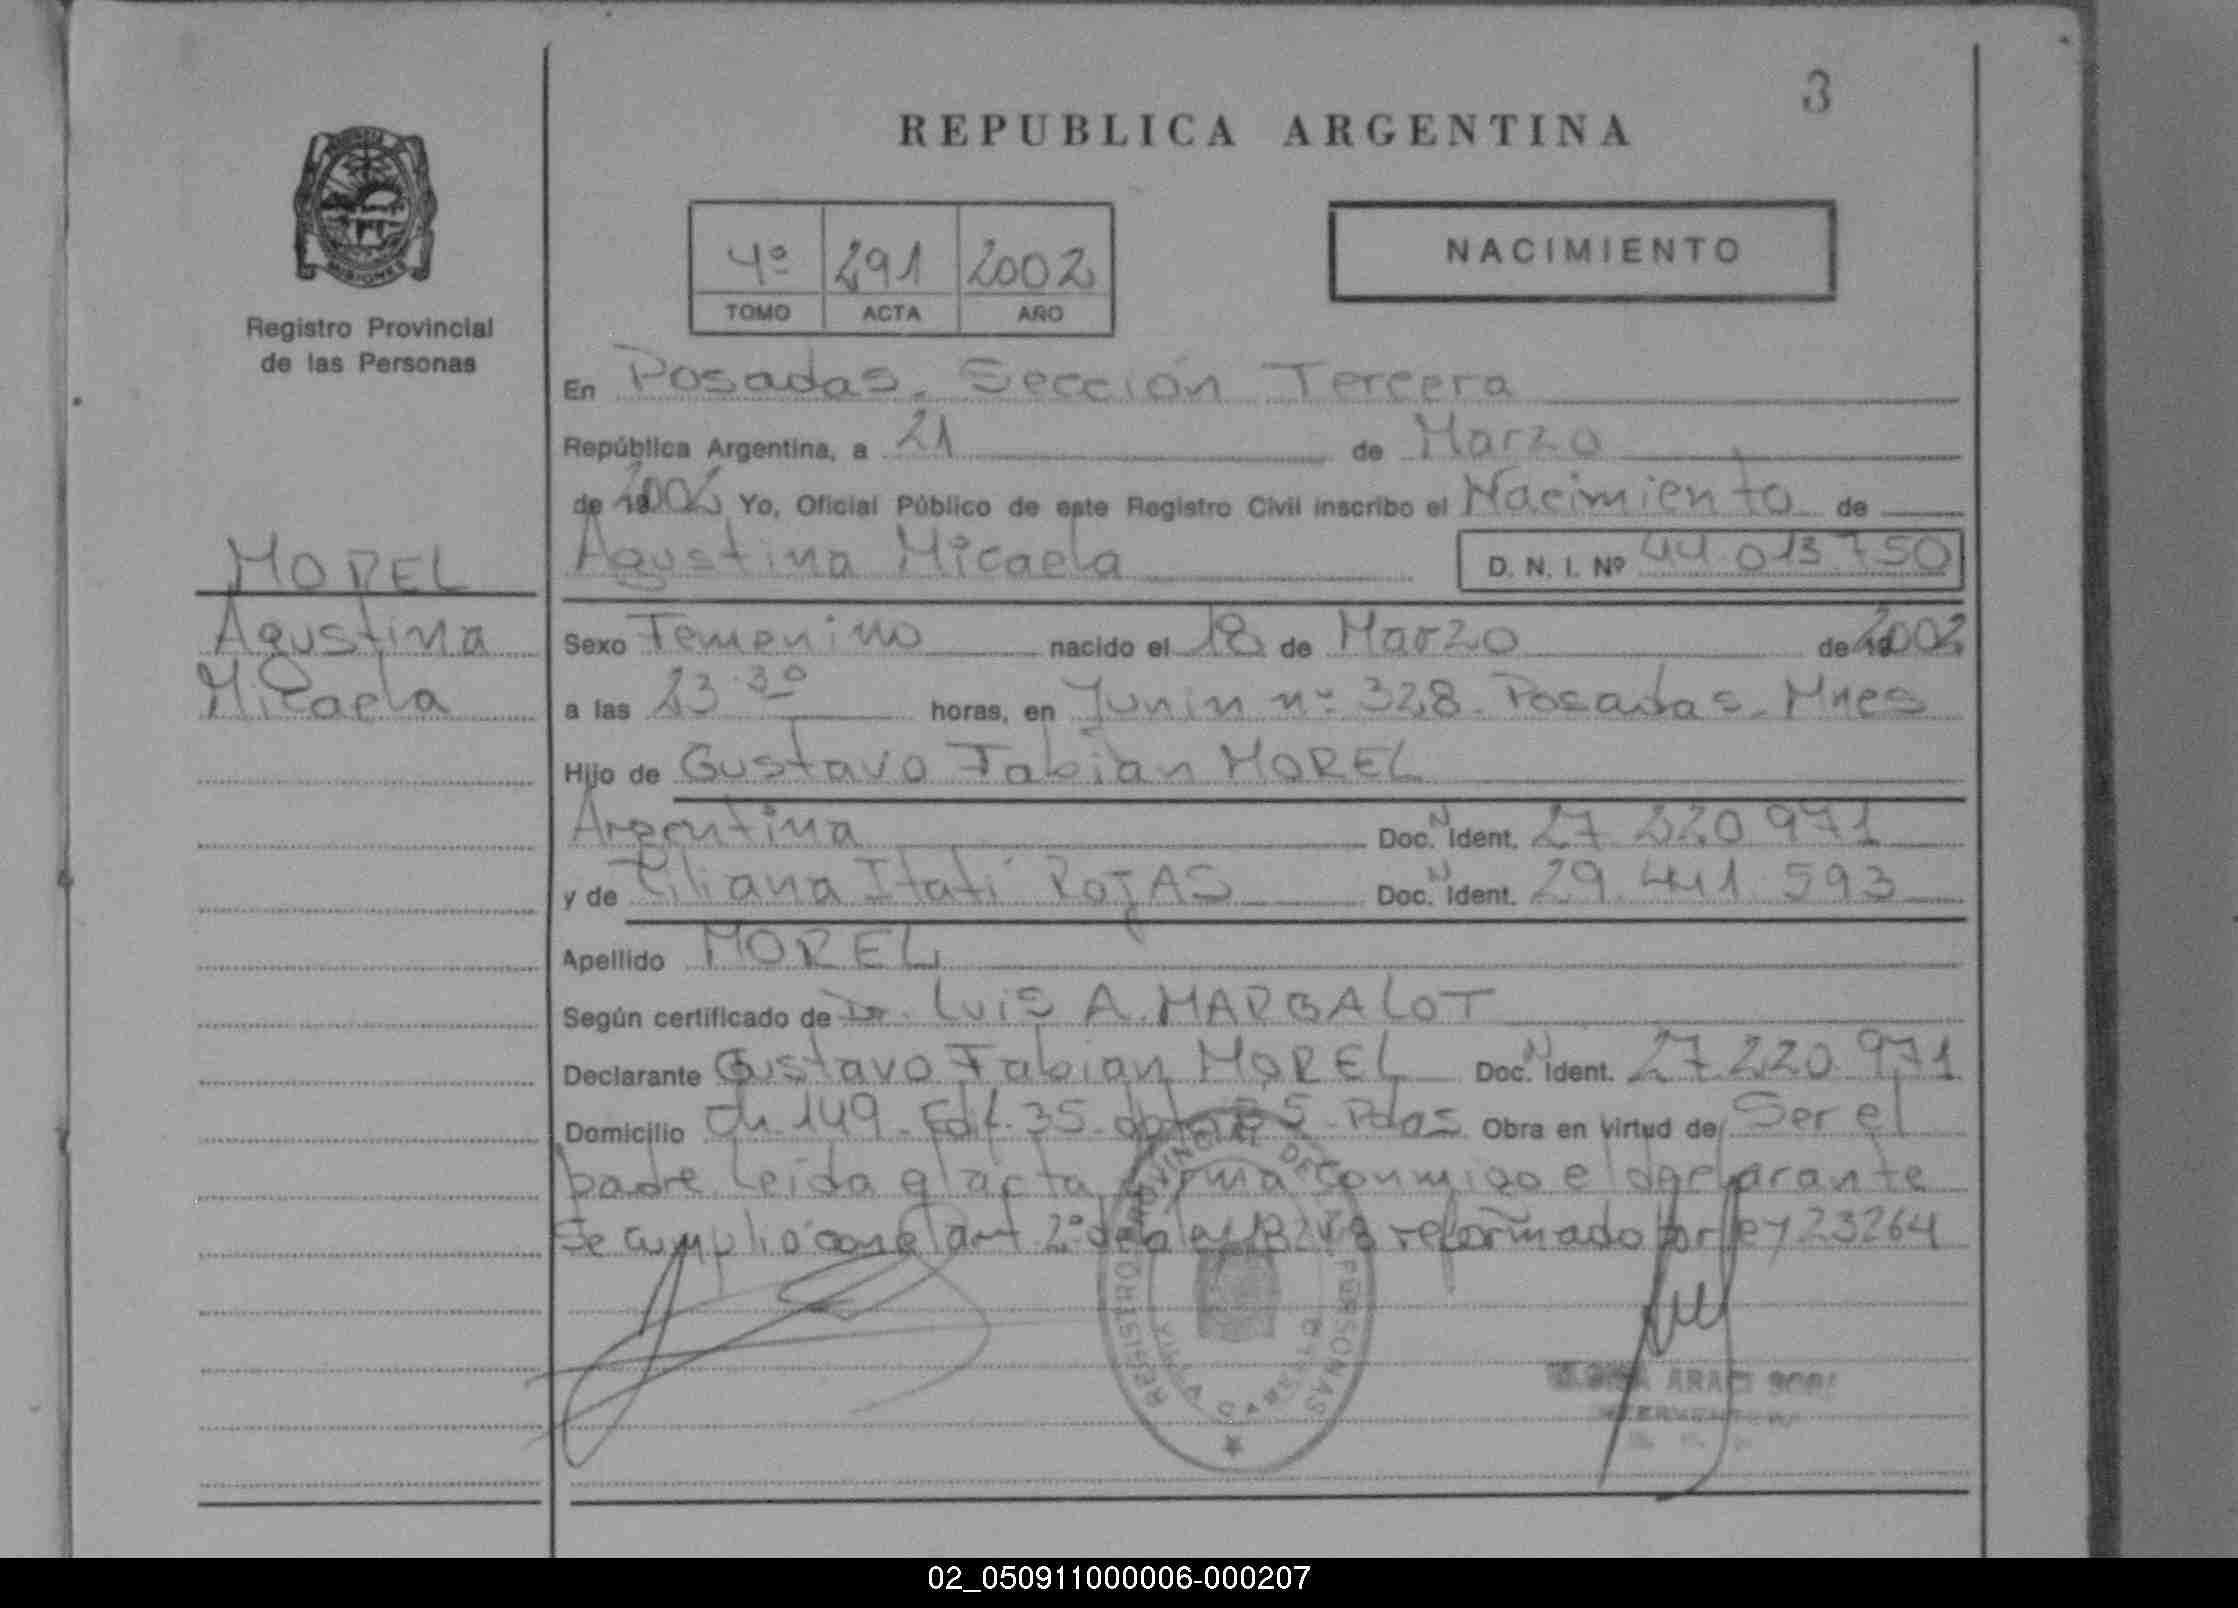 3
REPUBLICA ARGENTINA
4º 291 2002
TOMO ACTA AÑO
NACIMIENTO
MISIONES
Registro Provincial
de las Personas
En Posadas. Sección Tercera
República Argentina, a 21 de Marzo
de 2002 Yo, Oficial Público de este Registro Civil inscribo el Nacimiento de
Agustina Micaela D. N. I. Nº 44 013 750
MOREL
Agustina
Micaela
Sexo Femenino nacido el 18 de Marzo de 2002
a las 23 30 horas, en Junin nº 328. Posadas. Mnes
Hijo de Gustavo Fabian MOREL
Argentina Doc. N Ident. 27 220 971
y de Liliana Itatí ROJAS Doc. N Ident. 29.441 593
Apellido MOREL
Según certificado de Dr. Luis A. MARGALOT
Declarante Gustavo Fabian MOREL Doc. N Ident. 27.220.971
Domicilio Ch. 149. Edif. 35. Pdas Obra en virtud de Ser el
padre Leida el acta firma conmigo el declarante
Se cumplio con el art 2º de la ley reformado por ley 23264
REGISTRO PROVINCIAL DE LAS PERSONAS
POSADAS
ARACI
02_050911000006-000207